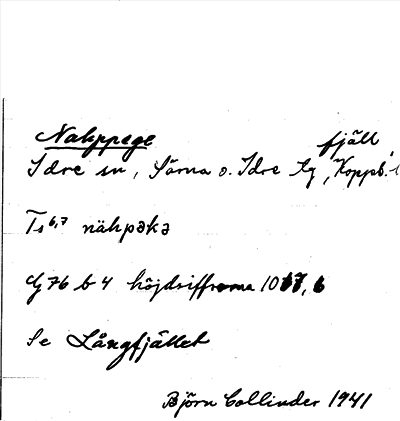 Nahppege fjäll
Idre sn, Särna o. Idre tg, Koppb. l
Ts 6,7 nähpəkə
G 76 b 4 höjdsiffrorna 1017, 6
Se Långfjället
Björn Collinder 1941